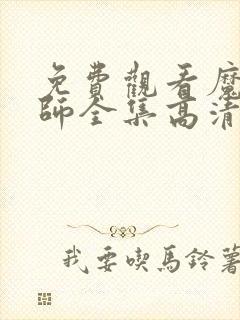 免費觀看魔
師全集高清
我要喫馬鈴薯